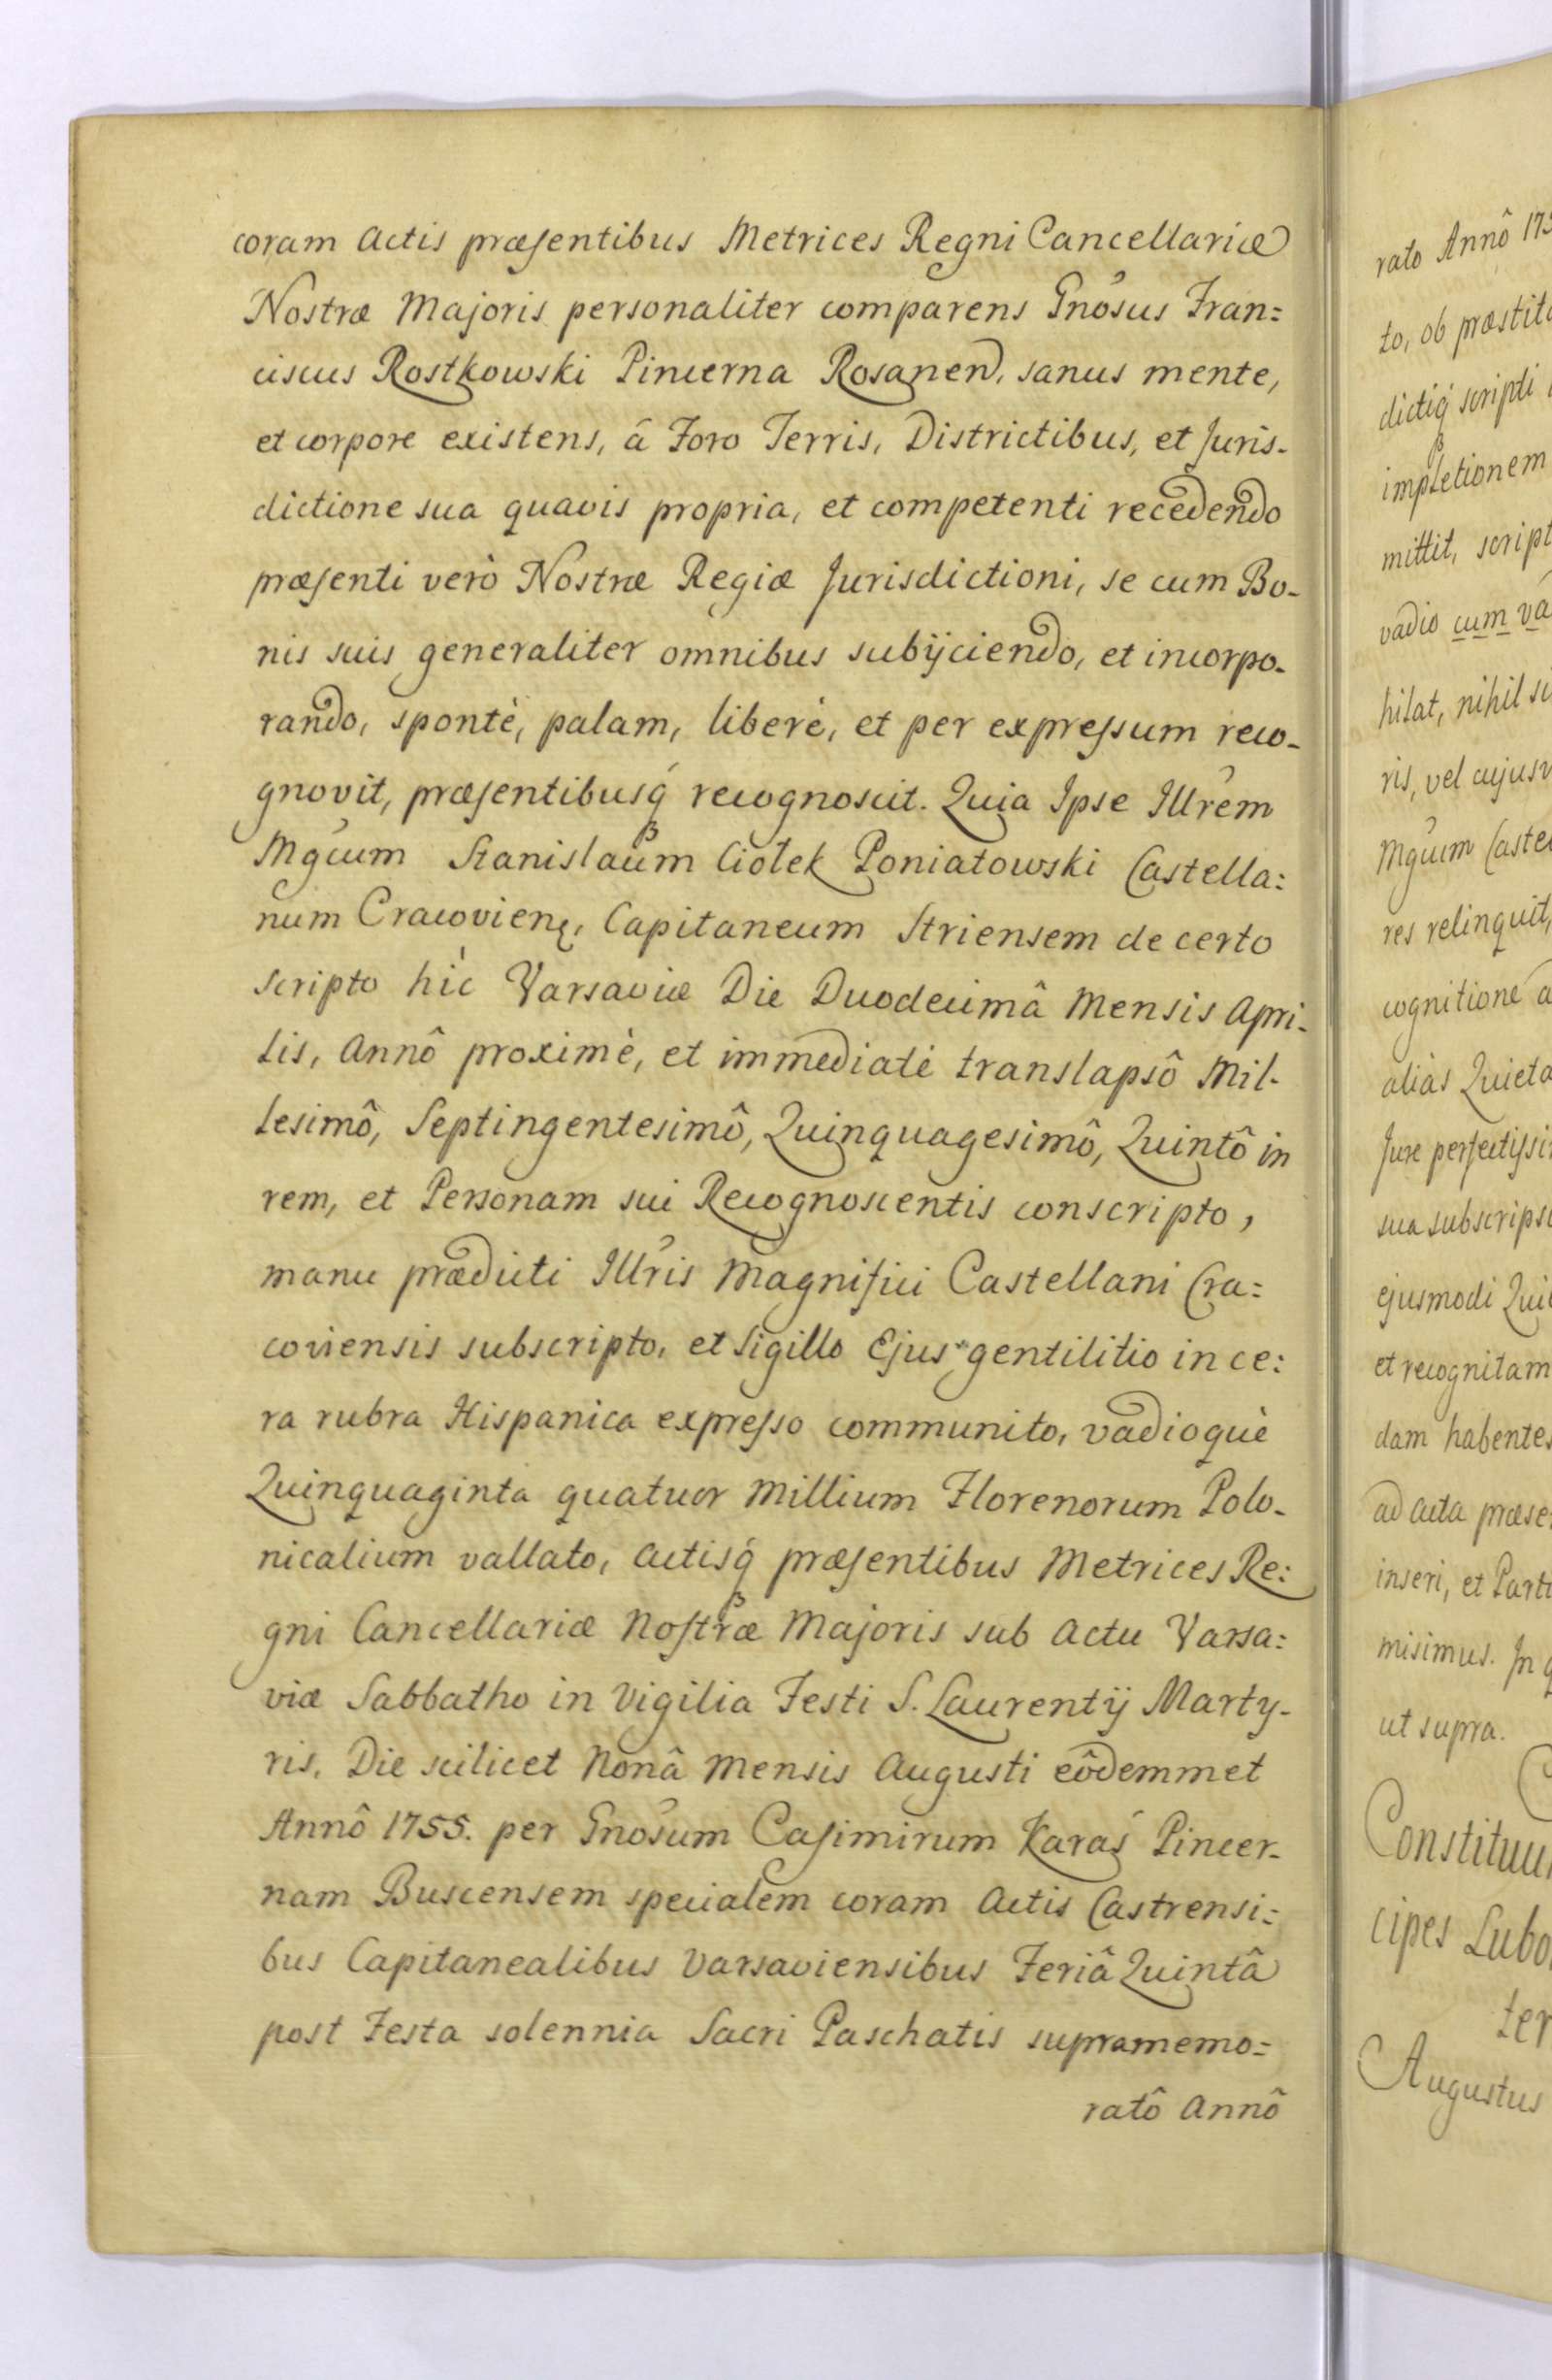 coram Actis præsentibus Metrices Regni Cancellariæ
Nostræ Majoris personaliter comparens Gnosus Fran=
ciscus Rostkowski Pincerna Rosanen. sanus mente,
et corpore existens, â Foro Terris, Districtibus, et Juris-
dictione sua quavis propria, et competenti recedendo
præsenti verò Nostræ Regiæ Jurisdictioni, se cum Bo-
nis suis generaliter omnibus subijciendo, et incorpo-
rando, spontè, palam, liberè, et per expressum reco-
gnovit, præsentibusq́ recognoscit. Quia Ipse Illrem
Mgcum Stanislaum Ciołek Poniatowski Castella=
num Cracovien, Capitaneum Striensem de certo
scripto hìc Varsaviæ Die Duodecimâ Mensis Apri-
lis, Annô proximè, et immediatè translapsô Mil-
lesimô, Septingentesimô, Quinquagesimô, Quintô in
rem, et Personam sui Recognoscentis conscripto,
manu prædicti Illris Magnifici Castellani Cra=
coviensis subscripto, et Sigillo Ejus gentilitio in ce=
ra rubra Hispanica expresso communito, vadioquè
Quinquaginta quatuor Millium Florenorum Polo-
nicalium vallato, Actisq́ præsentibus Metrices Re=
gni Cancellariæ Nostræ Majoris sub Actu Varsa=
viæ Sabbatho in Vigilia Festi S. Laurentij Marty-
ris, Die scilicet Nonâ Mensis Augusti eôdemmet
Annô 1755. per Gnosum Casimirum Karaś Pincer-
nam Buscensem specialem coram Actis Castrensi=
bus Capitanealibus Varsaviensibus Feriâ Quintâ
post Festa solennia Sacri Paschatis supramemo=
ratô Annô
rato Annô 175
to, ob præstit
dictiq́ scripti
impletionem
mittit, script
vadio cum va
hilat, nihil si
ris, vel cujusv
Mgcum Caste
res relinquit,
cognitione a
aliàs Quieta
Jure perfectissi
sua subscrips
ejusmodi Qui
et recognitam
dam habente
ad Acta præse
inseri, et Parti
misimus. In q
ut supra.
Constituu
cipes Lubo
ter
Augustus